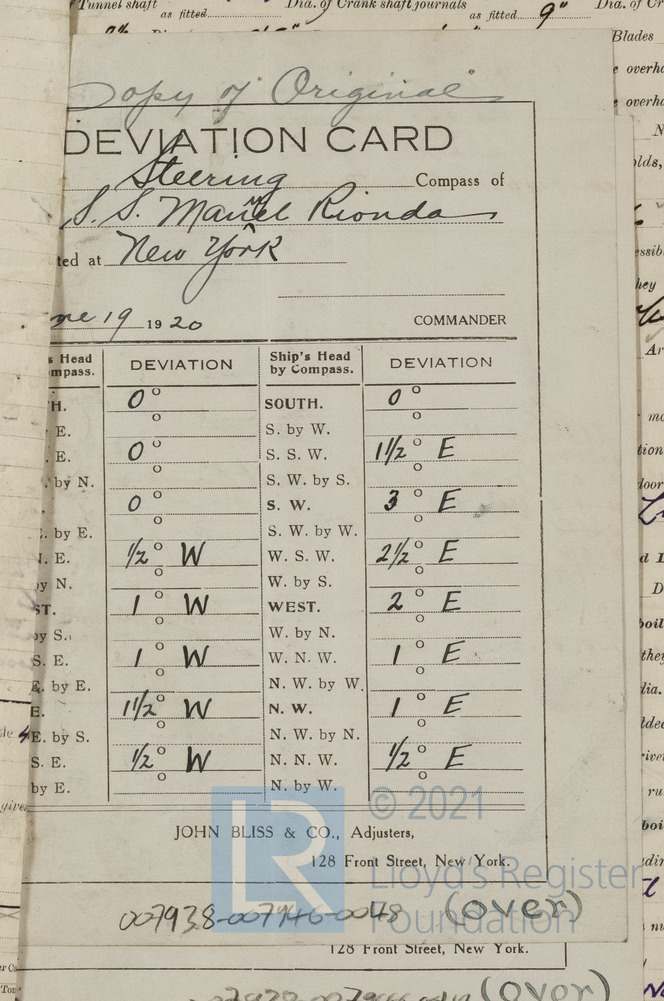 Tunnel shaft as fitted Dia. of Crank shaft journals as fitted 9" Dia. of Cr
Blades
overha
overha
Copy of Original
DEVIATION CARD
Steering Compass of
S. S. Manuel Rionda
ted at New York
ne 19 1920
COMMANDER
s Head mpass. DEVIATION Ship's Head by Compass. DEVIATION
H. 0° SOUTH. 0°
E. ° S. by W. °
E. 0° S. S. W. 1½° E
by N. ° S. W. by S. °
0° S. W. 3° E
by E. ° S. W. by W. °
E. ½° W W. S. W. 2½° E
y N. ° W. by S. °
ST. 1° W WEST. 2° E
by S. ° W. by N. °
S. E. 1° W W. N. W. 1° E
E. by E. ° N. W. by W. °
E. 1½° W N. W. 1° E
E. by S. ° N. W. by N. °
S. E. ½° W N. N. W. ½° E
by E. ° N. by W. °
JOHN BLISS & CO., Adjusters,
128 Front Street, New York.
© 2021
LR
Lloyd's Register
Foundation
007938-007946-0048 (over)
128 Front Street, New York.
(over)